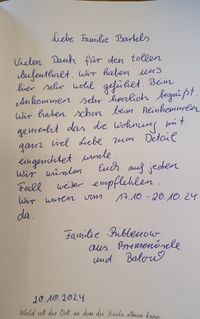 Liebe Familie Bartels
Vielen Dank für den tollen
Aufenthalt. Wir haben uns
hier sehr wohl gefühlt. Beim
Ankommen sehr herzlich begrüßt.
Wir haben schon beim Reinkommen
gemerkt das die Wohnung mit
ganz viel Liebe zum Detail
eingerichtet wurde.
Wir würden Euch auf jeden
Fall weiter empfehlen.
Wir waren vom 17.10. - 20.10.24
da.
Familie
aus
und Balou
20.10.2024
Wald ist der Ort, an dem die Seele atmen kann